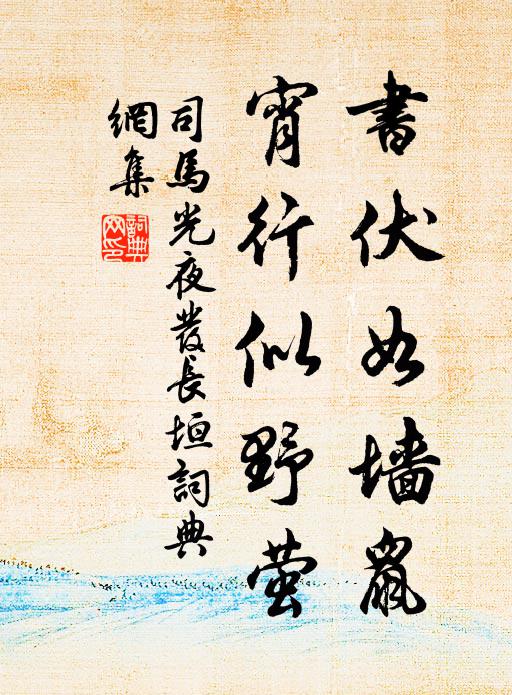 書伏如墙鼠
宵行似野萤
司馬光夜發長垣詞典
網集
詞典
网印